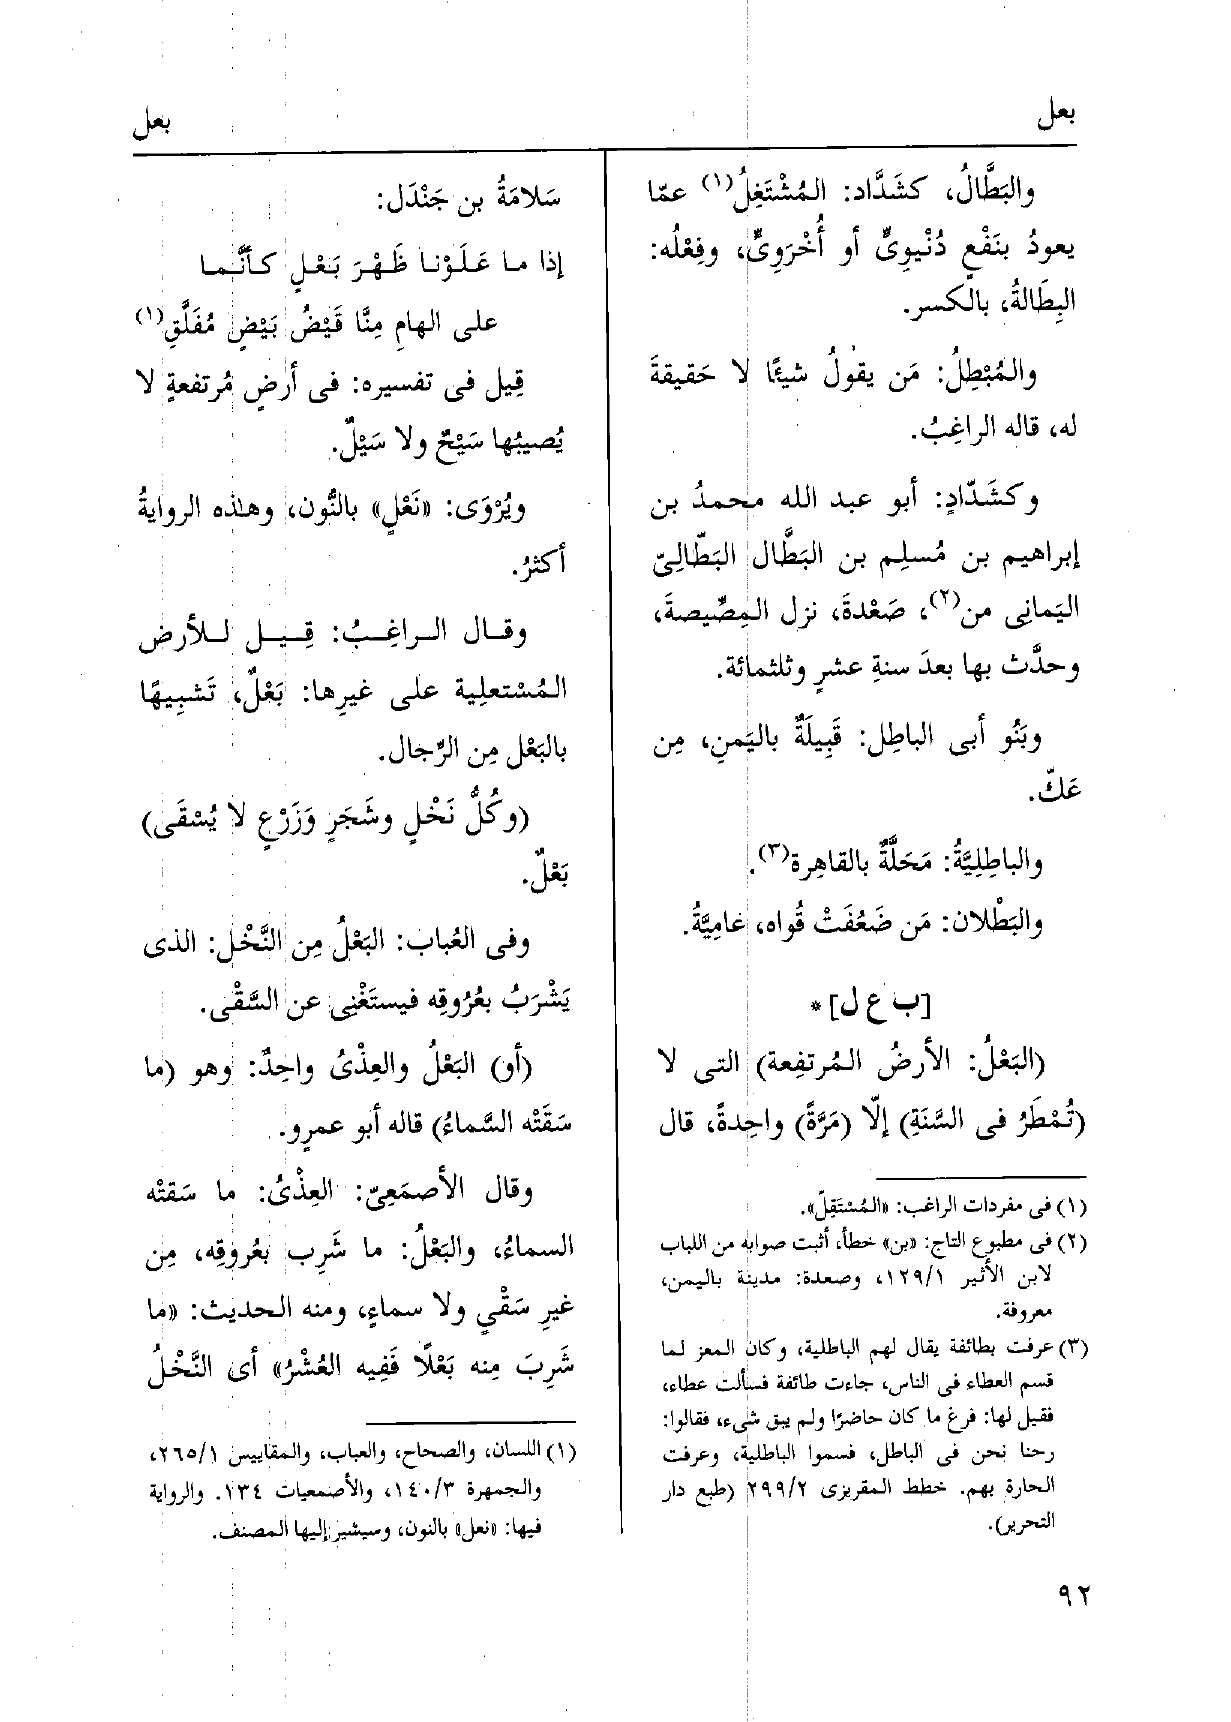 بعل
بعل
والبَطَّالُ، كشَدَّاد: المُشْتَغِلُ(١) عمّا
يعودُ بنَفْعٍ دُنْيوِىٍّ أو أُخْرَوِىٍّ، وفِعْلُه:
البِطَالةُ، بالكسر.
والمُبْطِلُ: مَن يقولُ شيئًا لا حَقيقةَ
له، قاله الراغِبُ.
وكشَدّادٍ: أبو عبد الله محمدُ بن
إبراهيم بن مُسلِم بن البَطَّال البَطّالِىّ
اليَمانِى من(٢)، صَعْدةَ، نزل المِصِّيصةَ،
وحدَّث بها بعدَ سنةِ عشرٍ وثلثمائة.
وبَنُو أبى الباطِل: قَبِيلَةٌ باليَمنِ، مِن
عَكّ.
والباطِلِيَّةُ: مَحَلَّةٌ بالقاهِرة(٣).
والبَطْلان: مَن ضَعُفَتْ قُواه، عامِيَّةُ.
[ب ع ل] *
(البَعْلُ: الأرضُ المُرتفِعة) التى لا
(تُمْطَرُ فى السَّنَةِ) إلّا (مَرَّةً) واحِدةً، قال
(١) فى مفردات الراغب: «المُسْتَقِلّ».
(٢) فى مطبوع التاج: «بن» خطأ، أثبت صوابه من اللباب
لابن الأثير ١٢٩/١، وصعدة: مدينة باليمن،
معروفة.
(٣) عرفت بطائفة يقال لهم الباطلية، وكان المعز لما
قسم العطاء فى الناس، جاءت طائفة فسألت عطاء،
فقيل لها: فرغ ما كان حاضرًا ولم يبق شىء، فقالوا:
رحنا نحن فى الباطل، فسموا الباطلية، وعرفت
الحارة بهم. خطط المقريزى ٢٩٩/٢ (طبع دار
التحرير).
سَلامَةُ بن جَنْدَل:
إذا ما عَلَوْنا ظَهْرَ بَعْلٍ كأنَّما
على الهامِ مِنَّا قَيْضُ بَيْضٍ مُفَلَّقِ(١)
قِيل فى تفسيره: فى أرضٍ مُرتفعةٍ لا
يُصيبُها سَيْحٌ ولا سَيْلٌ.
ويُرْوَى: «نَعْلٍ» بالنُّون، وهذه الروايةُ
أكثرُ.
وقال الراغِبُ: قِيل للأرض
المُسْتعلِية على غيرِها: بَعْلٌ، تَشبِيهًا
بالبَعْل مِن الرِّجال.
(وكُلُّ نَخْلٍ وشَجَرٍ وَزَرْعٍ لا يُسْقَى)
بَعْلٌ.
وفى العُباب: البَعْلُ مِن النَّخْل: الذى
يَشْرَبُ بعُرُوقِه فيستَغْنِى عن السَّقْى.
(أو) البَعْلُ والعِذْىُ واحِدٌ: وهو (ما
سَقَتْه السَّماءُ) قاله أبو عمرٍو.
وقال الأصْمَعِىّ: العِذْىُ: ما سَقتْه
السماءُ، والبَعْلُ: ما شَرِب بعُروقِه، مِن
غيرِ سَقْىٍ ولا سماءٍ، ومنه الحديث: «ما
شَرِبَ مِنه بَعْلًا فَفِيه العُشْرُ» أى النَّخْلُ
(١) اللسان، والصحاح، والعباب، والمقاييس ٢٦٥/١،
والجمهرة ١٤٠/٣، والأصمعيات ١٣٤. والرواية
فيها: «نعل» بالنون، وسيشير إليها المصنف.
٩٢